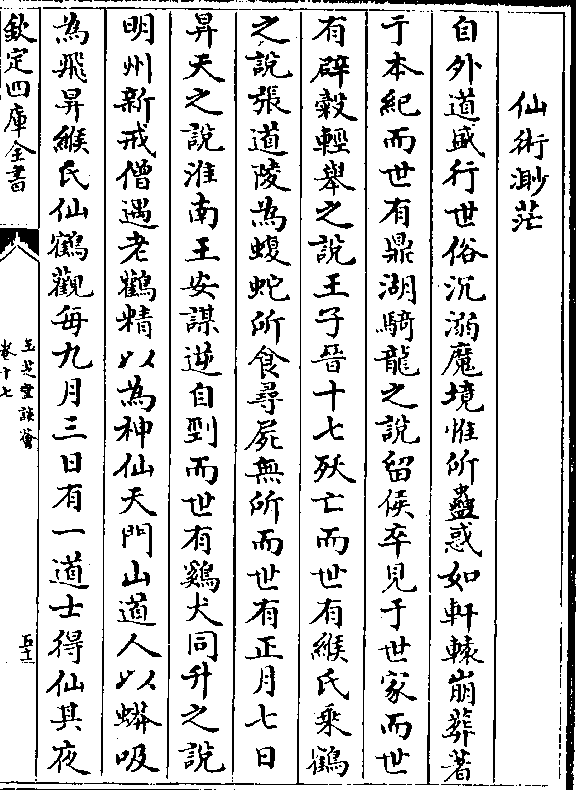 仙術渺茫
自外道盛行世俗沉溺魔境惟所蠱惑如軒轅崩葬著
于本紀而世有鼎湖騎龍之說留侯卒見于世家而世
有辟穀輕舉之說王子晉十七殀亡而世有緱氏乘鶴
之說張道陵為蝮蛇所食尋屍無所而世有正月七日
昇天之說淮南王安謀逆自剄而世有鷄犬同升之說
明州新戒僧遇老鸛精以為神仙天門山道人以蟒吸
為飛昇緱氏仙鶴觀每九月三日有一道士得仙其夜
欽定四庫全書
玉芝堂談薈
卷十七